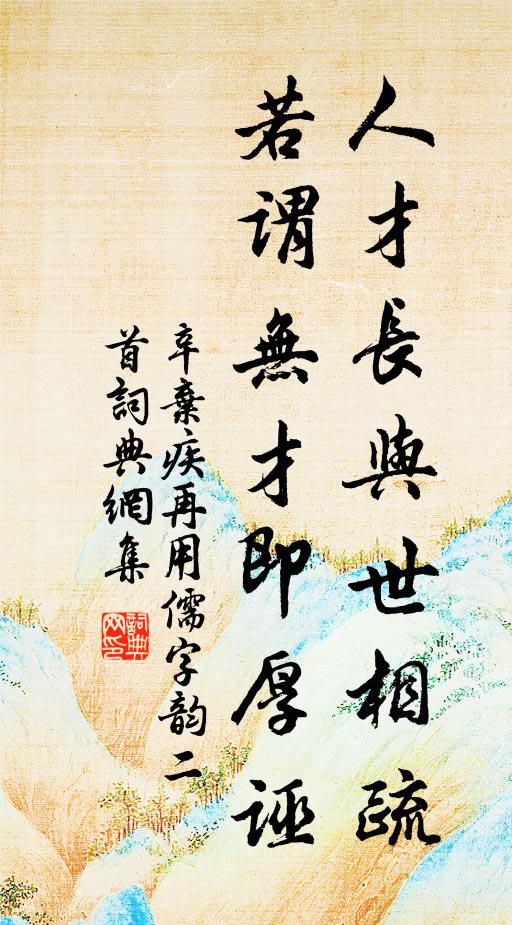 人才長與世相疏
若謂無才即厚誣
辛棄疾再用儒字韵二
首詞典網集
詞典
网印